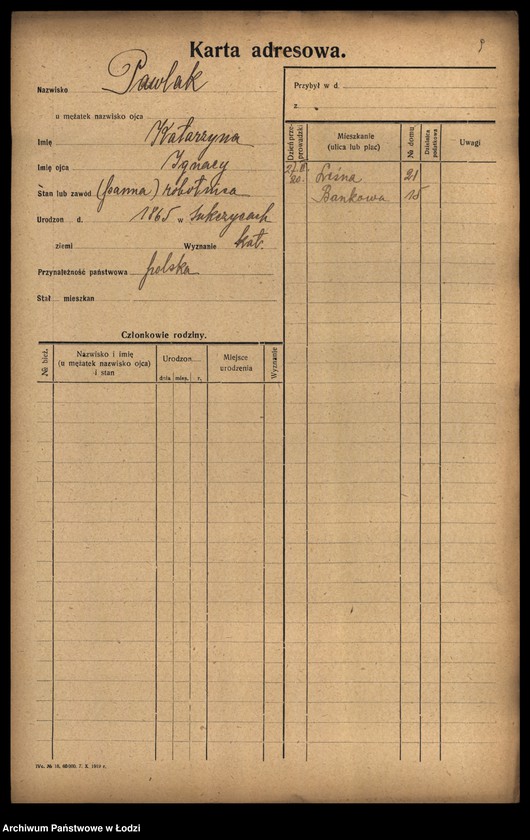 9
Karta adresowa.
Nazwisko Pawlak
u mężatek nazwisko ojca
Imię Katarzyna
Imię ojca Ignacy
Stan lub zawód (panna) robotnica
Urodzon d. 1865 w Sukczycach
ziemi Wyznanie kat.
Przynależność państwowa polska
Stał. mieszkan
Członkowie rodziny.
№ bież.
Nazwisko i imię
(u mężatek nazwisko ojca)
i stan
Urodzon
dnia mies. r.
Miejsce
urodzenia
Wyznanie
Przybył w d.
z
Dzień prze-
prowadzki
Mieszkanie
(ulica lub plac)
№ domu
Dzielnica
podatkowa
Uwagi
20. Leśna 21
Bankowa 15
7. X. 1919 r.
Archiwum Państwowe w Łodzi